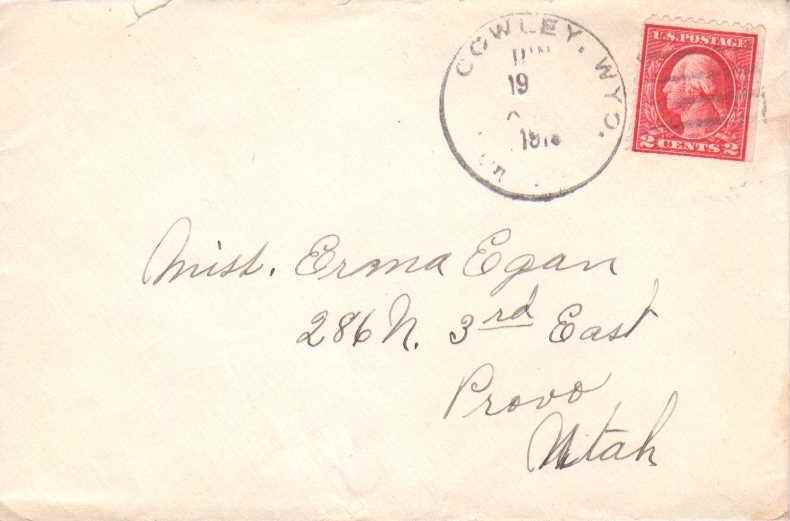 COWLEY, WYO.
19
U.S. POSTAGE
2 CENTS 2
Miss. Erma Egan
286 N. 3rd East
Provo
Utah